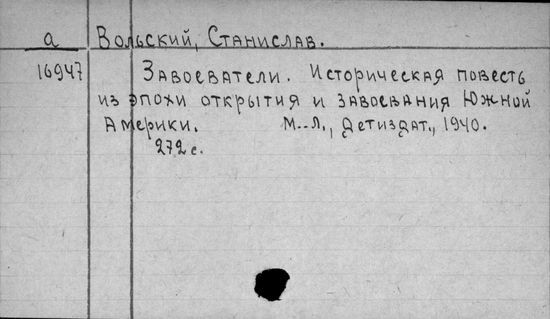 а Вольский, Станислав.
16947 Завоеватели. Историческая повесть
из эпохи открытия и завоевания Южной
Америки. М.-Л., Детиздат., 1940.
272 с.